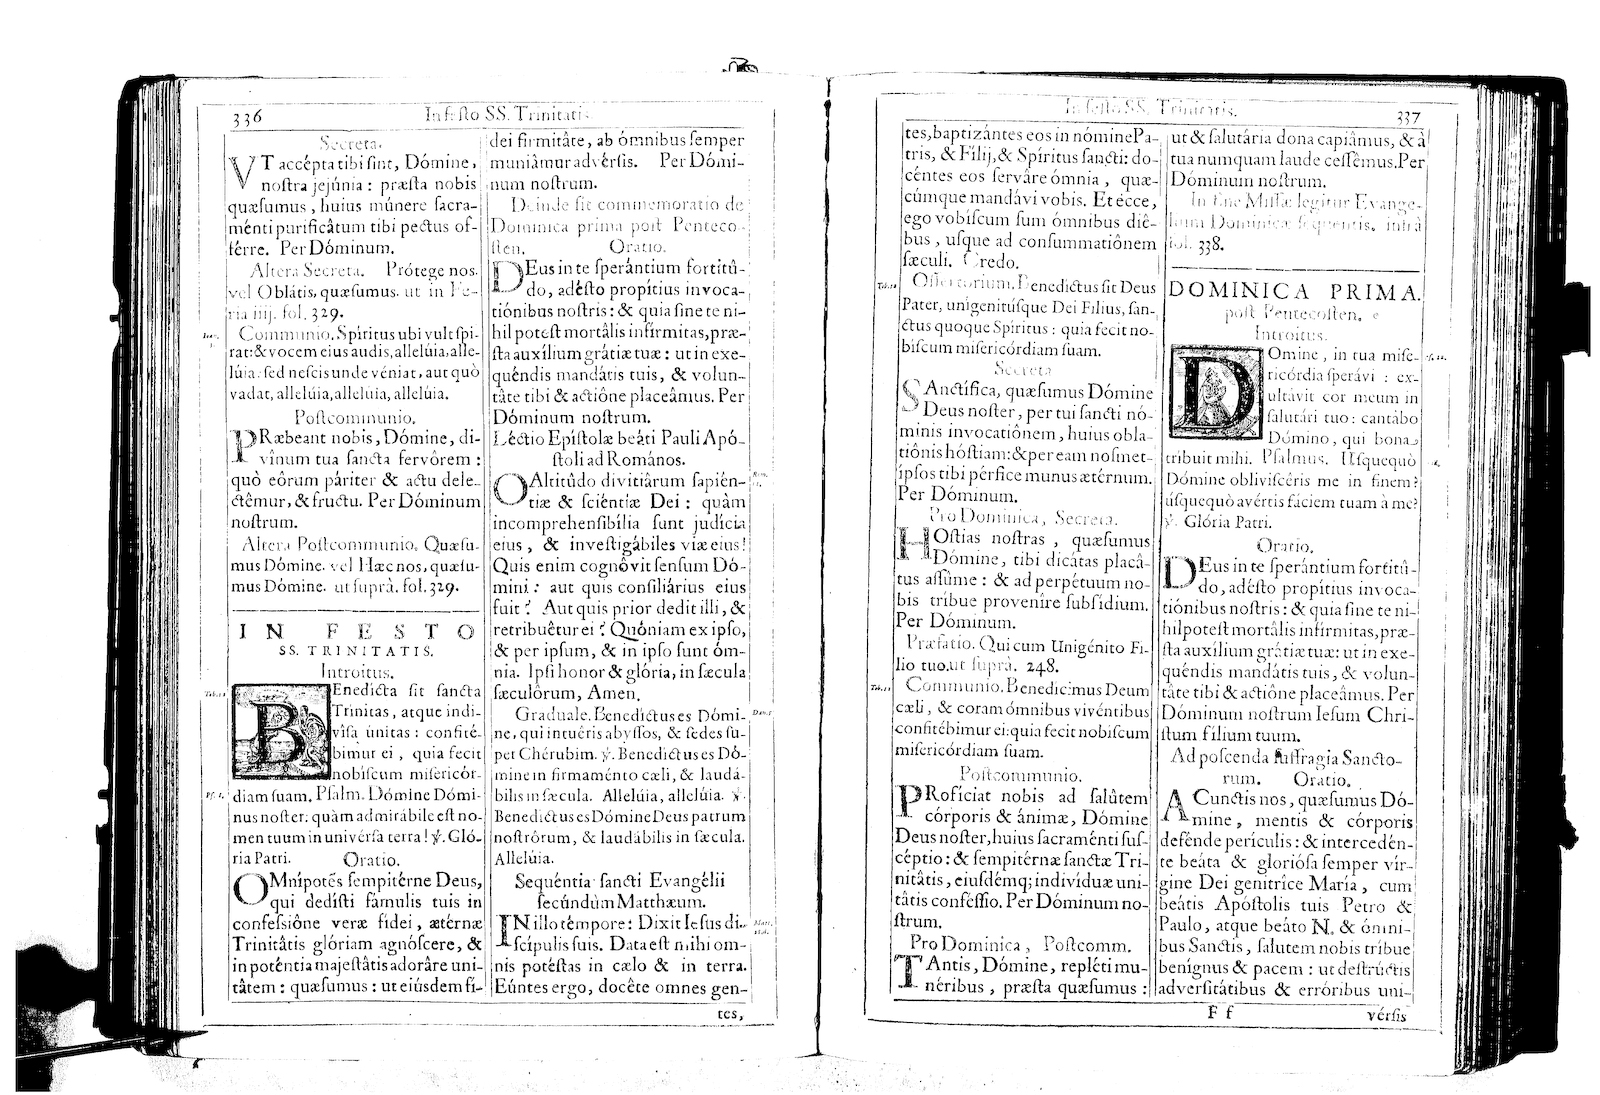 336
In festo SS. Trinitatis.
Secreta.
VT accépta tibi sint, Dómine,
nostra jejúnia: præsta nobis
quæsumus, huius múnere sacra-
ménti purificâtum tibi pectus of-
férre. Per Dóminum.
Altera Secreta. Prótege nos.
vel Oblátis, quæsumus. ut in Fe-
ria iiij. fol. 329.
Communio. Spíritus ubi vult spi-
rat: & vocem eius audis, allelúia, alle-
lúia: sed nescis unde véniat, aut quò
vadat, allelúia, allelúia, allelúia.
Postcommunio.
PRæbeant nobis, Dómine, di-
vînum tua sancta fervôrem:
quò eôrum páriter & actu dele-
ctêmur, & fructu. Per Dóminum
nostrum.
Altera Postcommunio. Quæsu-
mus Dómine. vel Hæc nos, quæsu-
mus Dómine. ut suprà. fol. 329.
IN FESTO
SS. TRINITATIS.
Introitus.
BEnedícta sit sancta
Trinitas, atque indi-
vîsa únitas: confité-
bimur ei, quia fecit
nobíscum misericór-
diam suam. Psalm. Dómine Dómi-
nus noster: quàm admirábile est no-
men tuum in univérsa terra! ℣. Gló-
ria Patri. Oratio.
OMnípotẽs sempitérne Deus,
qui dedísti fámulis tuis in
confessiône veræ fídei, ætérnæ
Trinitâtis glóriam agnóscere, &
in poténtia majestâtis adorâre uni-
tâtem: quæsumus: ut eiúsdem fí-
dei firmitâte, ab ómnibus semper
muniâmur advérsis. Per Dómi-
num nostrum.
Deinde fit commemoratio de
Dominica prima post Penteco-
sten. Oratio.
DEus in te sperántium fortitû-
do, adésto propítius invoca-
tiónibus nostris: & quia sine te ni-
hil potest mortâlis infírmitas, præ-
sta auxílium grátiæ tuæ: ut in exe-
quéndis mandátis tuis, & volun-
tâte tibi & actiône placeâmus. Per
Dóminum nostrum.
Léctio Epístolæ beáti Pauli Apó-
stoli ad Romános.
OAltitûdo divitiârum sapién-
tiæ & sciéntiæ Dei: quàm
incomprehensibília sunt judícia
eius, & investigábiles viæ eius!
Quis enim cognôvit sensum Dó-
mini: aut quis consiliárius eius
fuit? Aut quis prior dedit illi, &
retribuêtur ei? Quóniam ex ipso,
& per ipsum, & in ipso sunt óm-
nia. Ipsi honor & glória, in sæcula
sæculórum, Amen.
Graduale. Benedíctus es Dómi-
ne, qui intuéris abyssos, & sedes su-
per Chérubim. ℣. Benedíctus es Dó-
mine in firmaménto cæli, & laudá-
bilis in sæcula. Allelúia, allelúia. ℣.
Benedíctus es Dómine Deus patrum
nostrórum, & laudábilis in sæcula.
Allelúia.
Sequéntia sancti Evangélii
secúndùm Matthæum.
IN illo témpore: Dixit Iesus di-
scípulis suis. Data est mihi om-
nis potéstas in cælo & in terra.
Eúntes ergo, docête omnes gen-
tes,
In festo SS. Trinitatis.
337
tes, baptizántes eos in nómine Pa-
tris, & Fílij, & Spíritus sancti: do-
céntes eos servâre ómnia, quæ-
cúmque mandávi vobis. Et ecce,
ego vobíscum sum ómnibus diê-
bus, usque ad consummatiônem
sæculi. Credo.
Offertorium. Benedíctus sit Deus
Pater, unigenitúsque Dei Filius, san-
ctus quoque Spiritus: quia fecit no-
bíscum misericórdiam suam.
Secreta
SAnctífica, quæsumus Dómine
Deus noster, per tui sancti nó-
minis invocatiônem, huius obla-
tiônis hóstiam: & per eam nosmet-
ípsos tibi pérfice munus ætérnum.
Per Dóminum.
Pro Dominica, Secreta.
HOstias nostras, quæsumus
Dómine, tibi dicátas placâ-
tus assûme: & ad perpétuum no-
bis tríbue provenîre subsídium.
Per Dóminum.
Præfatio. Qui cum Unigénito Fi-
lio tuo. ut suprà. 248.
Communio. Benedícimus Deum
cæli, & coram ómnibus vivéntibus
confitébimur ei: quia fecit nobíscum
misericórdiam suam.
Postcommunio.
PRofíciat nobis ad salûtem
córporis & ánimæ, Dómine
Deus noster, huius sacraménti sus-
céptio: & sempitérnæ sanctæ Tri-
nitâtis, eiusdémq; indivíduæ uni-
tâtis conféssio. Per Dóminum no-
strum.
Pro Dominica, Postcomm.
TAntis, Dómine, repléti mu-
néribus, præsta quæsumus:
ut & salutária dona capiâmus, & à
tua numquam laude cessêmus. Per
Dóminum nostrum.
In fine Missæ legitur Evange-
lium Dominicæ sequentis. infrà
fol. 338.
DOMINICA PRIMA.
post Pentecosten.
Introitus.
DOmine, in tua mise-
ricórdia sperávi: ex-
ultávit cor meum in
salutári tuo: cantábo
Dómino, qui bona
tribuit mihi. Psalmus. Usquequò
Dómine oblivíscéris me in finem?
úsquequò avértis fáciem tuam à me?
℣. Glória Patri.
Oratio.
DEus in te sperántium fortitû-
do, adésto propítius invoca-
tiónibus nostris: & quia sine te ni-
hil potest mortâlis infírmitas, præ-
sta auxílium grátiæ tuæ: ut in exe-
quéndis mandátis tuis, & volun-
tâte tibi & actiône placeâmus. Per
Dóminum nostrum Iesum Chri-
stum fílium tuum.
Ad poscenda suffragia Sancto-
rum. Oratio.
ACunctis nos, quæsumus Dó-
mine, mentis & córporis
defénde perículis: & intercedén-
te beáta & gloriósa semper vír-
gine Dei genitríce María, cum
beátis Apóstolis tuis Petro &
Paulo, atque beáto N. & ómni-
bus Sanctis, salutem nobis tríbue
benígnus & pacem: ut destrúctis
adversitâtibus & erróribus uni-
F f
vérsis